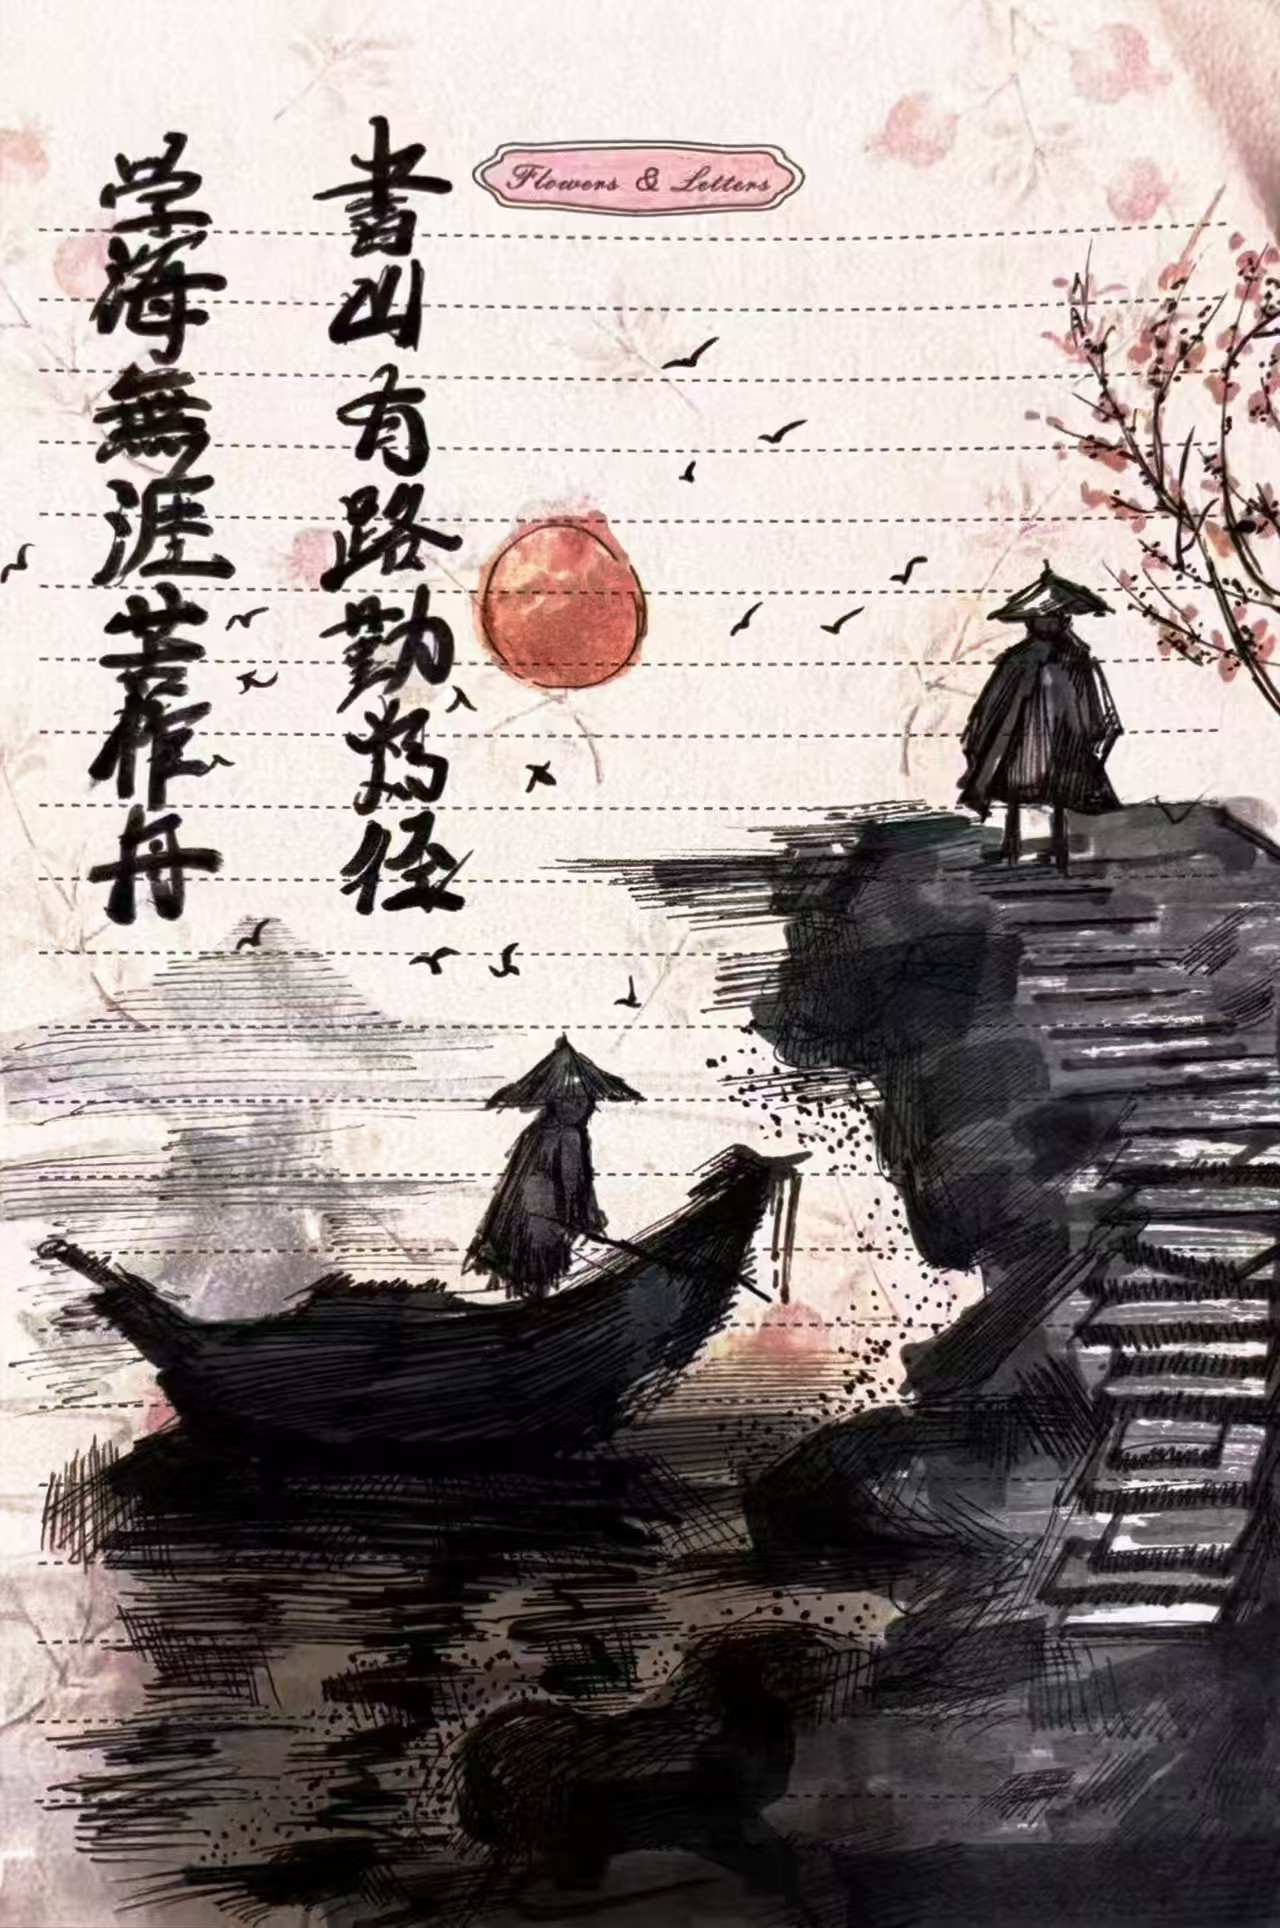 書山有路勤為徑
学海無涯苦作舟
Flowers & Letters